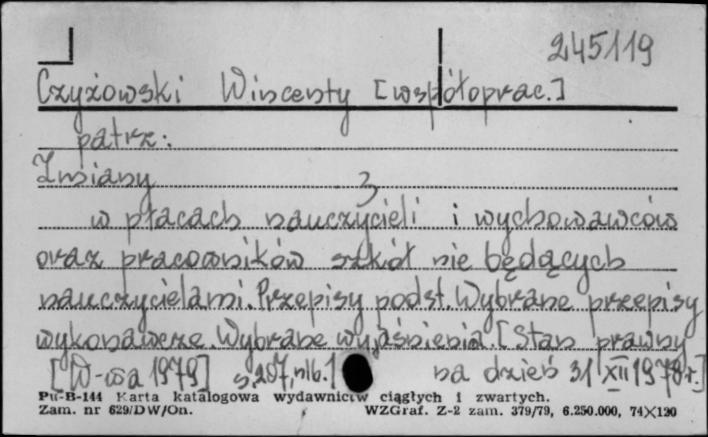 245119
Czyżowski Wincenty [współoprac.]
patrz:
Zmiany
3
w płacach nauczycieli i wychowawców
oraz pracowników szkół nie będących
nauczycielami. Przepisy podst. Wybrane przepisy
wykonawcze. Wybrane wyjaśnienia. [Stan prawny
[W-wa 1979] s. 207, nlb. 1 na dzień 31 XII 1978 r.]
Pu-B-144 Karta katalogowa wydawnictw ciągłych i zwartych.
Zam. nr 629/DW/On. WZGraf. Z-2 zam. 379/79, 6.250.000, 74×120